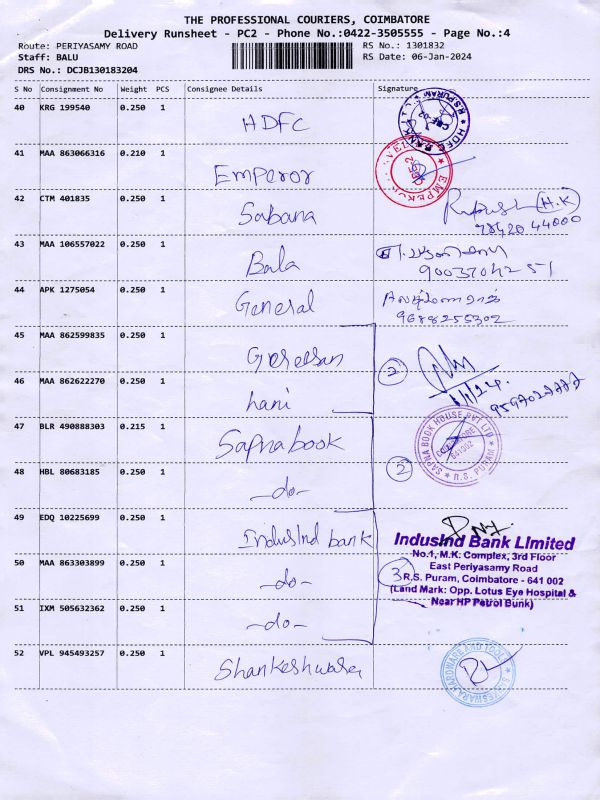 THE PROFESSIONAL COURIERS, COIMBATORE
Delivery Runsheet - PC2 - Phone No.:0422-3505555 - Page No.:4
Route: PERIYASAMY ROAD
Staff: BALU
DRS No.: DCJB130183204
RS No.: 1301832
RS Date: 06-Jan-2024
S No Consignment No Weight PCS Consignee Details Signature
40 KRG 199540 0.250 1 HDFC
41 MAA 863066316 0.210 1 Emperor
42 CTM 401835 0.250 1 Sabana
H.K
78420 44000
43 MAA 106557022 0.250 1 Bala
9003704251
44 APK 1275054 0.250 1 General
9688255302
45 MAA 862599835 0.250 1
46 MAA 862622270 0.250 1 hani
2
9597027777
47 BLR 490888303 0.215 1 Sapna book
SAPNA BOOK HOUSE PVT LTD
COIMBATORE
641002
R.S. PURAM
48 HBL 80683185 0.250 1 -do-
2
49 EDQ 10225699 0.250 1 IndusInd bank
50 MAA 863303899 0.250 1 -do-
51 IXM 505632362 0.250 1 -do-
IndusInd Bank Limited
No.1, M.K. Complex, 3rd Floor
East Periyasamy Road
3 R.S. Puram, Coimbatore - 641 002
(Land Mark: Opp. Lotus Eye Hospital &
Near HP Petrol Bunk)
52 VPL 945493257 0.250 1 Shankeshwara
HARDWARE AND TOOLS